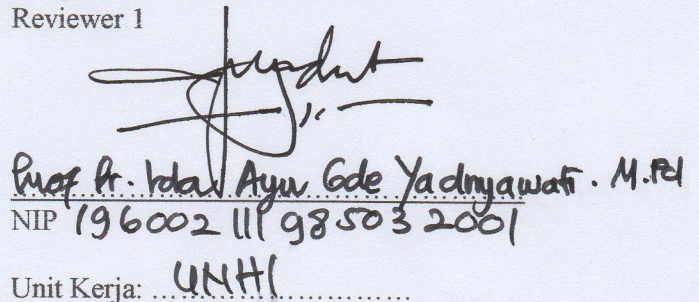 Reviewer 1
Prof Dr. Ida Ayu Gde Yadnyawati. M.Pd
NIP 196002 111 98503 2001
Unit Kerja: UNHI